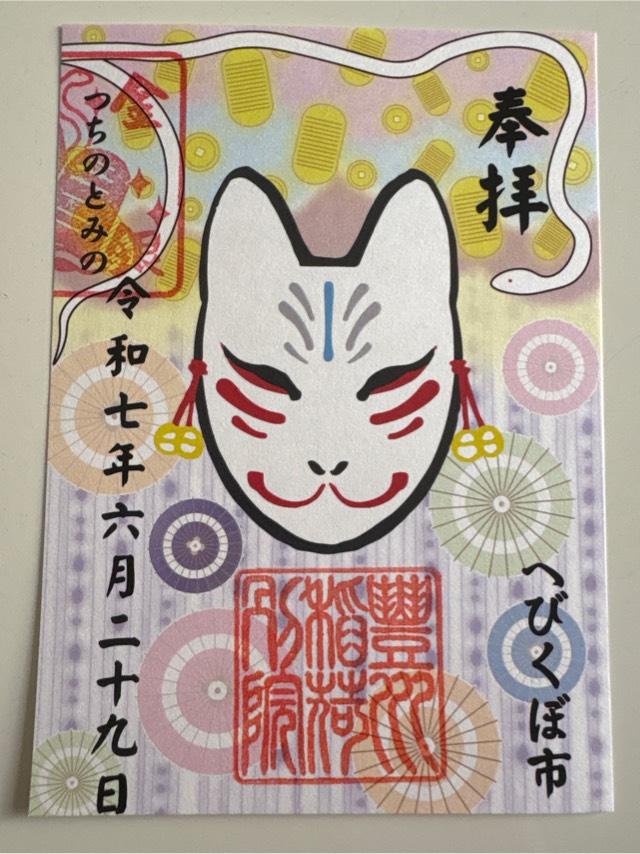 奉拝
へびくぼ市
豐川
稲荷
別院
つちのとみの
令和七年六月二十九日